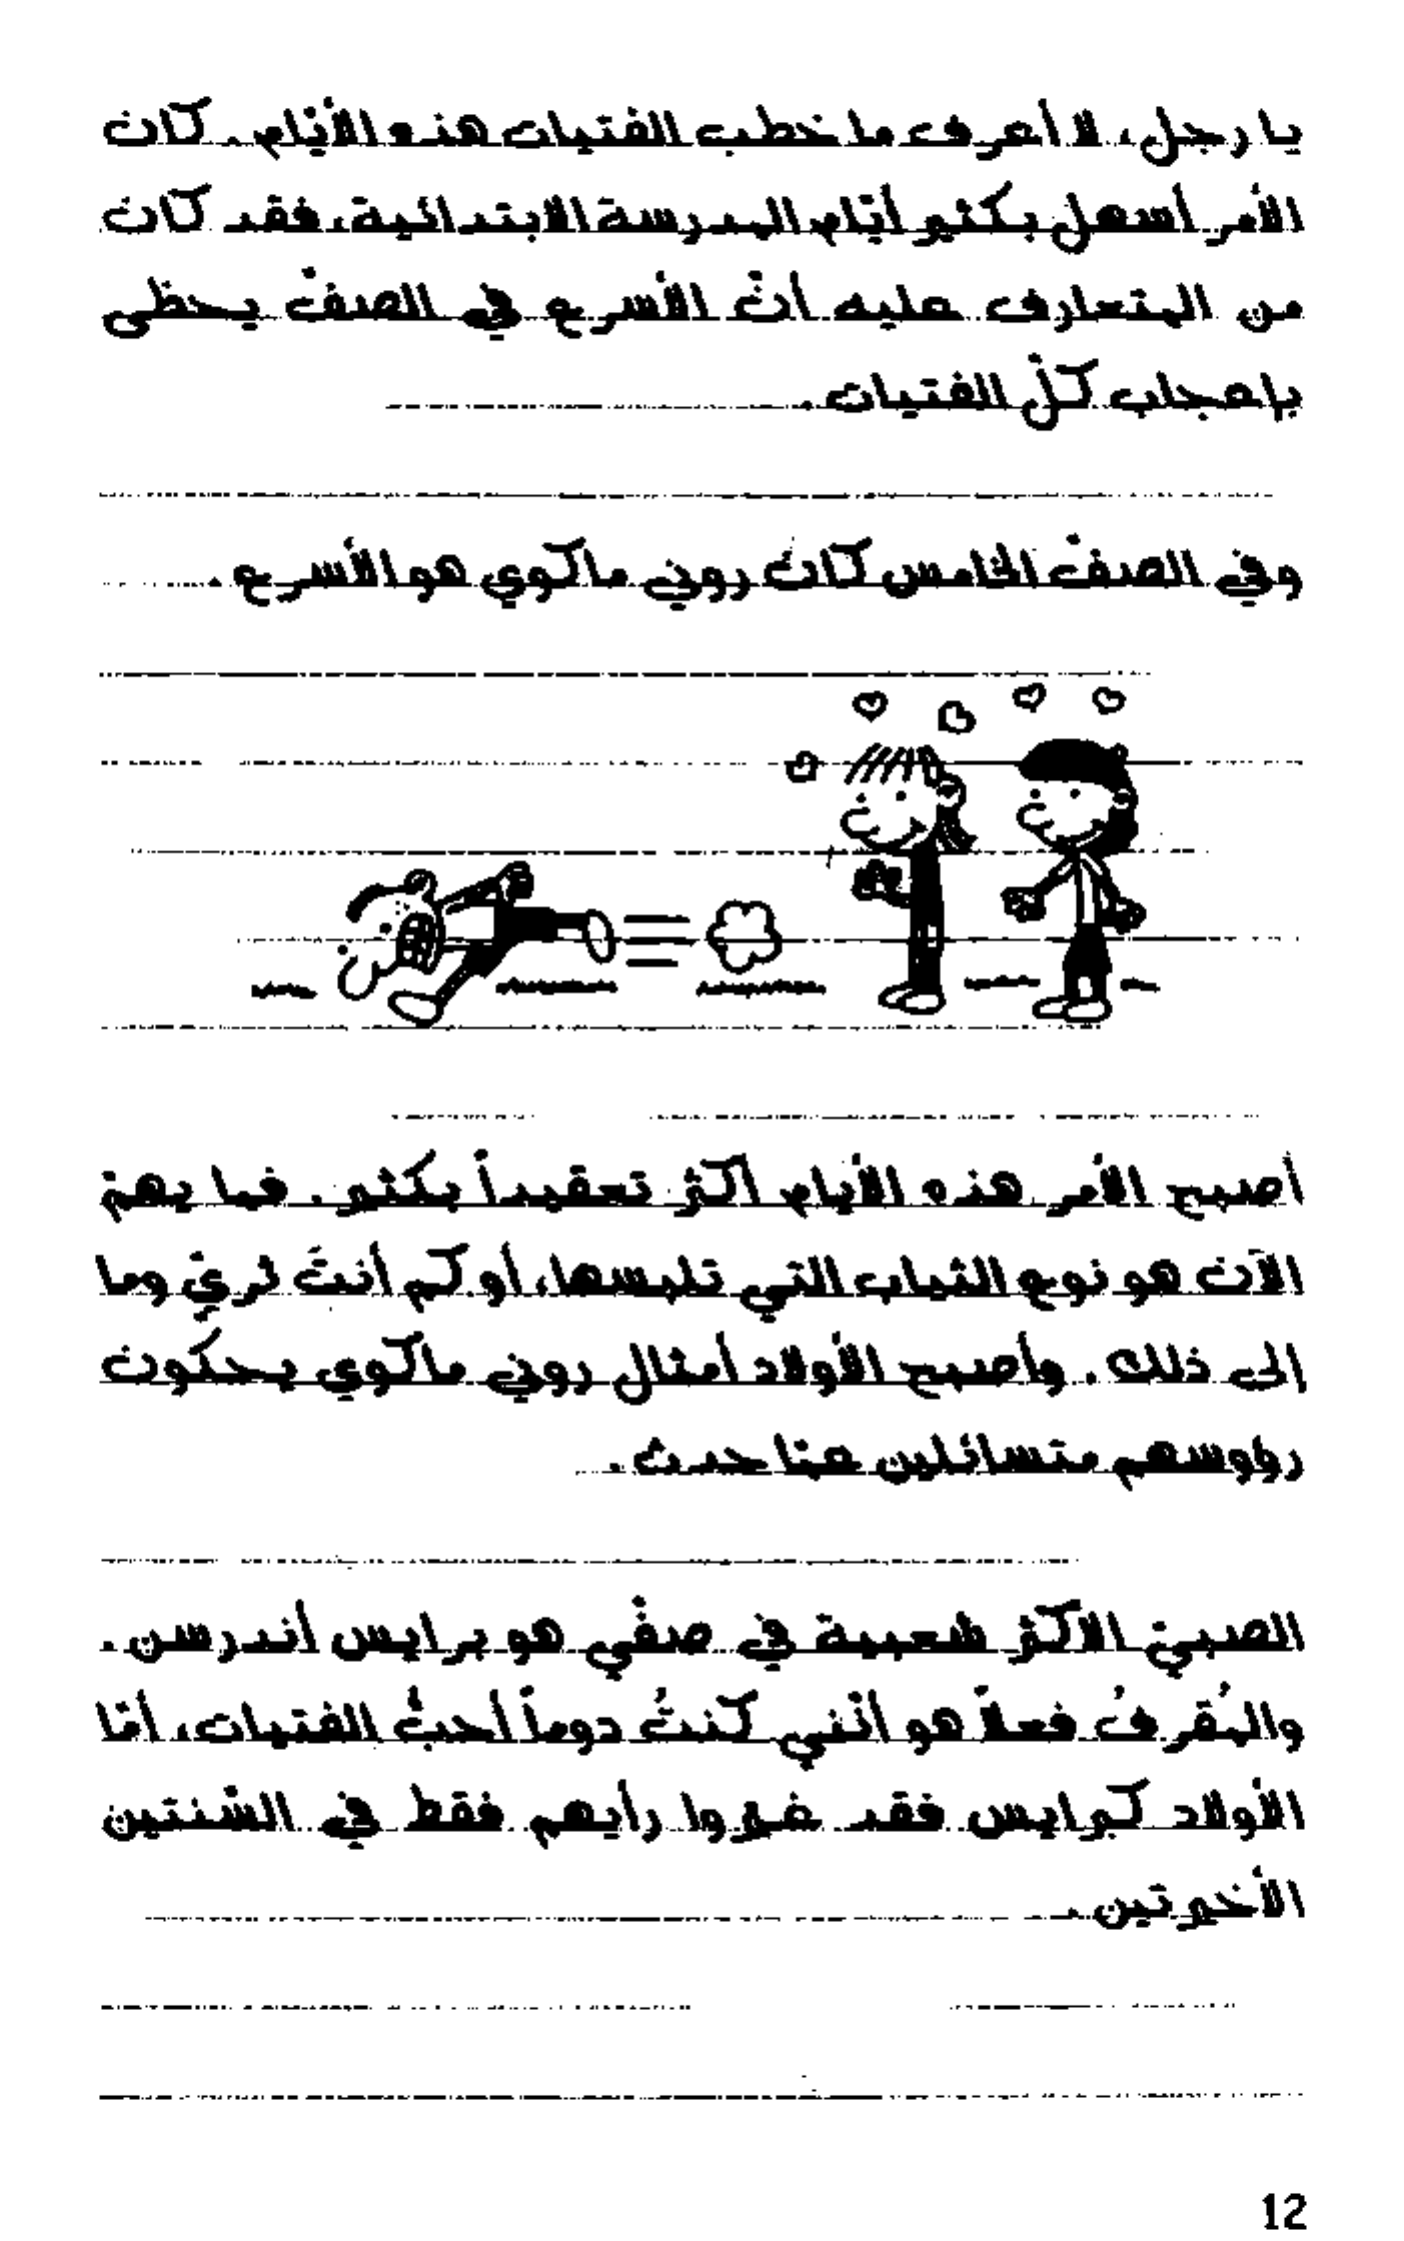 يا رجل، لا أعرف ما خطب الفتيات هذه الأيّام. كان
الأمر أسهل بكثير أيّام المدرسة الابتدائية، فقد كان
من المتعارف عليه أنّ الأسرع في الصفّ يحظى
بإعجاب كلّ الفتيات.
وفي الصفّ الخامس كان روني ماكوي هو الأسرع.
أصبح الأمر هذه الأيام أكثر تعقيداً بكثير. فما يهمّ
الآن هو نوع الثياب التي تلبسها، أو كم أنتَ ثريّ وما
إلى ذلك. وأصبح الأولاد أمثال روني ماكوي يحكون
رؤوسهم متسائلين عمّا حدث.
الصبيّ الأكثر شعبية في صفّي هو برايس أندرسن.
والمُقرفُ فعلاً هو أنّني كنتُ دوماً أحبُّ الفتيات، أمّا
الأولاد كبرايس فقد غيروا رأيهم فقط في السّنتين
الأخيرتين.
12